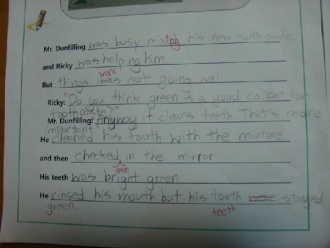 Mr. Dunfilling was busy mixing his new toothpaste
and Ricky was helping him
But things were was not going well
Ricky: "Do you think green is a good colour for
toothpaste?"
Mr. Dunfilling: Anyway it clears teeth. That's more
important!
He cleaned his tooth with the mixture
and then checked in the mirror
His teeth was bright green
He rinsed his mouth but his tooth were stayed
green. teeth